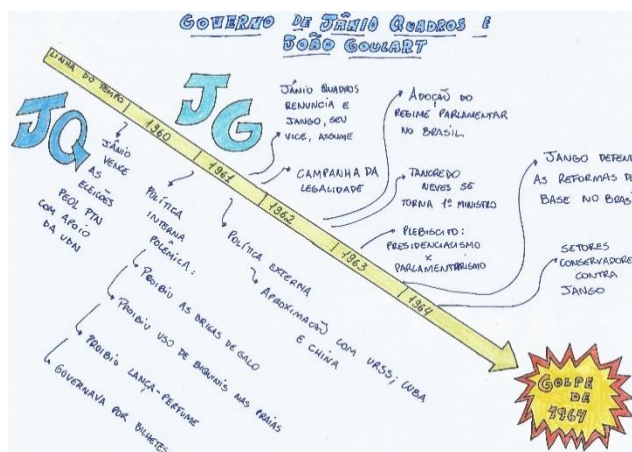 GOVERNO DE JÂNIO QUADROS E
JOÃO GOULART
LINHA DO TEMPO
1960
1961
1962
1963
1964
JQ
JG
JÂNIO
VENCE
AS
ELEIÇÕES
PEOL PTN
COM APOIO
DA UDN
POLÍTICA
INTERNA
POLÊMICA:
PROIBIU AS BRIGAS DE GALO
PROIBIU USO DE BIQUINIS NAS PRAIAS
PROIBIU LANÇA-PERFUME
GOVERNAVA POR BILHETES
POLÍTICA EXTERNA
APROXIMAÇÃO COM URSS, CUBA
E CHINA
JÂNIO QUADROS
RENUNCIA E
JANGO, SEU
VICE, ASSUME
CAMPANHA DA
LEGALIDADE
ADOÇÃO DO
REGIME PARLAMENTAR
NO BRASIL
TANCREDO
NEVES SE
TORNA 1º MINISTRO
PLEBISCITO:
PRESIDENCIALISMO
X
PARLAMENTARISMO
JANGO DEFEN
AS REFORMAS DE
BASE NO BRAS
SETORES
CONSERVADORES
CONTRA
JANGO
GOLPE
DE
1964